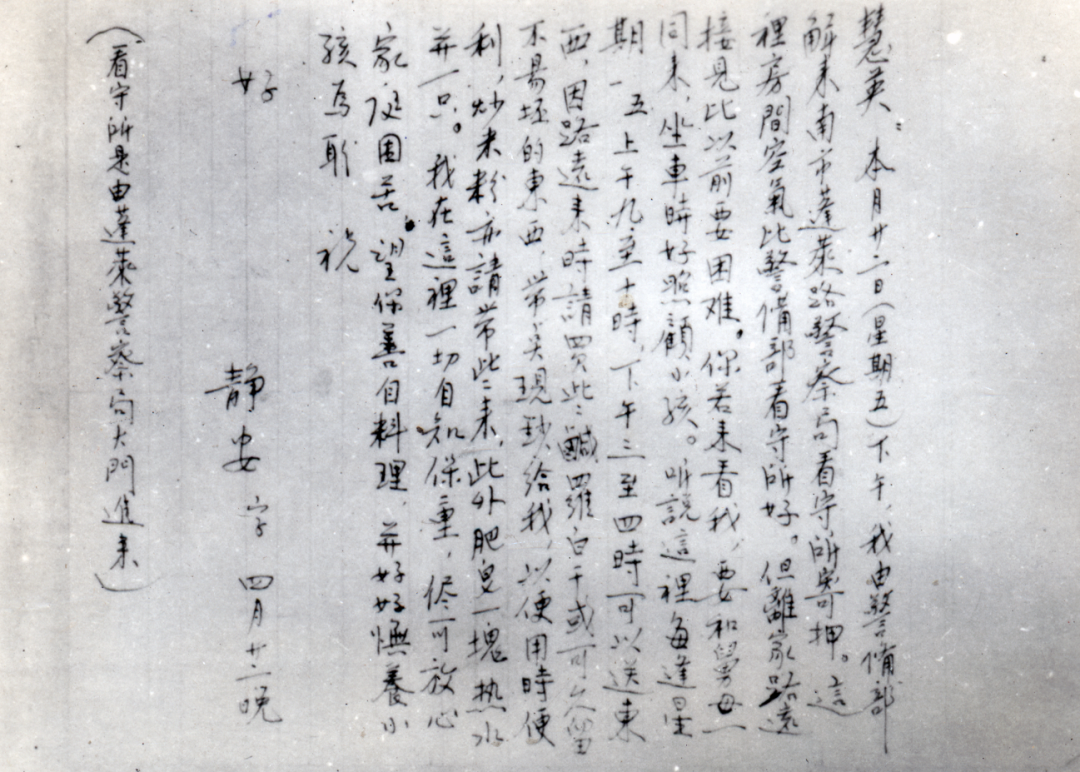 慧英：本月廿二日（星期五）下午，我由警備部
解来南市蓬萊路警察局看守所寄押。這
裡房間空氣比警備部看守所好。但離家路遠
接見比以前要困难。你若来看我，要和舅母一
同来，坐車時好照顧小孩。听説這裡每逢星
期一、五上午九至十時，下午三至四時可以送東
西，因路遠来時請買些鹹羅白干或可久留
不易坯的東西，带关現鈔給我，以便用時便
利，炒米粉亦請带些来，此外肥皂一塊热水
并一只。我在這裡一切自知保重，侭可放心
家庭困苦。望保善自料理，并好好憮養小
孩為盼 祝
好
靜安 字 四月廿二晚
（看守所是由蓬萊警察局大門進来）